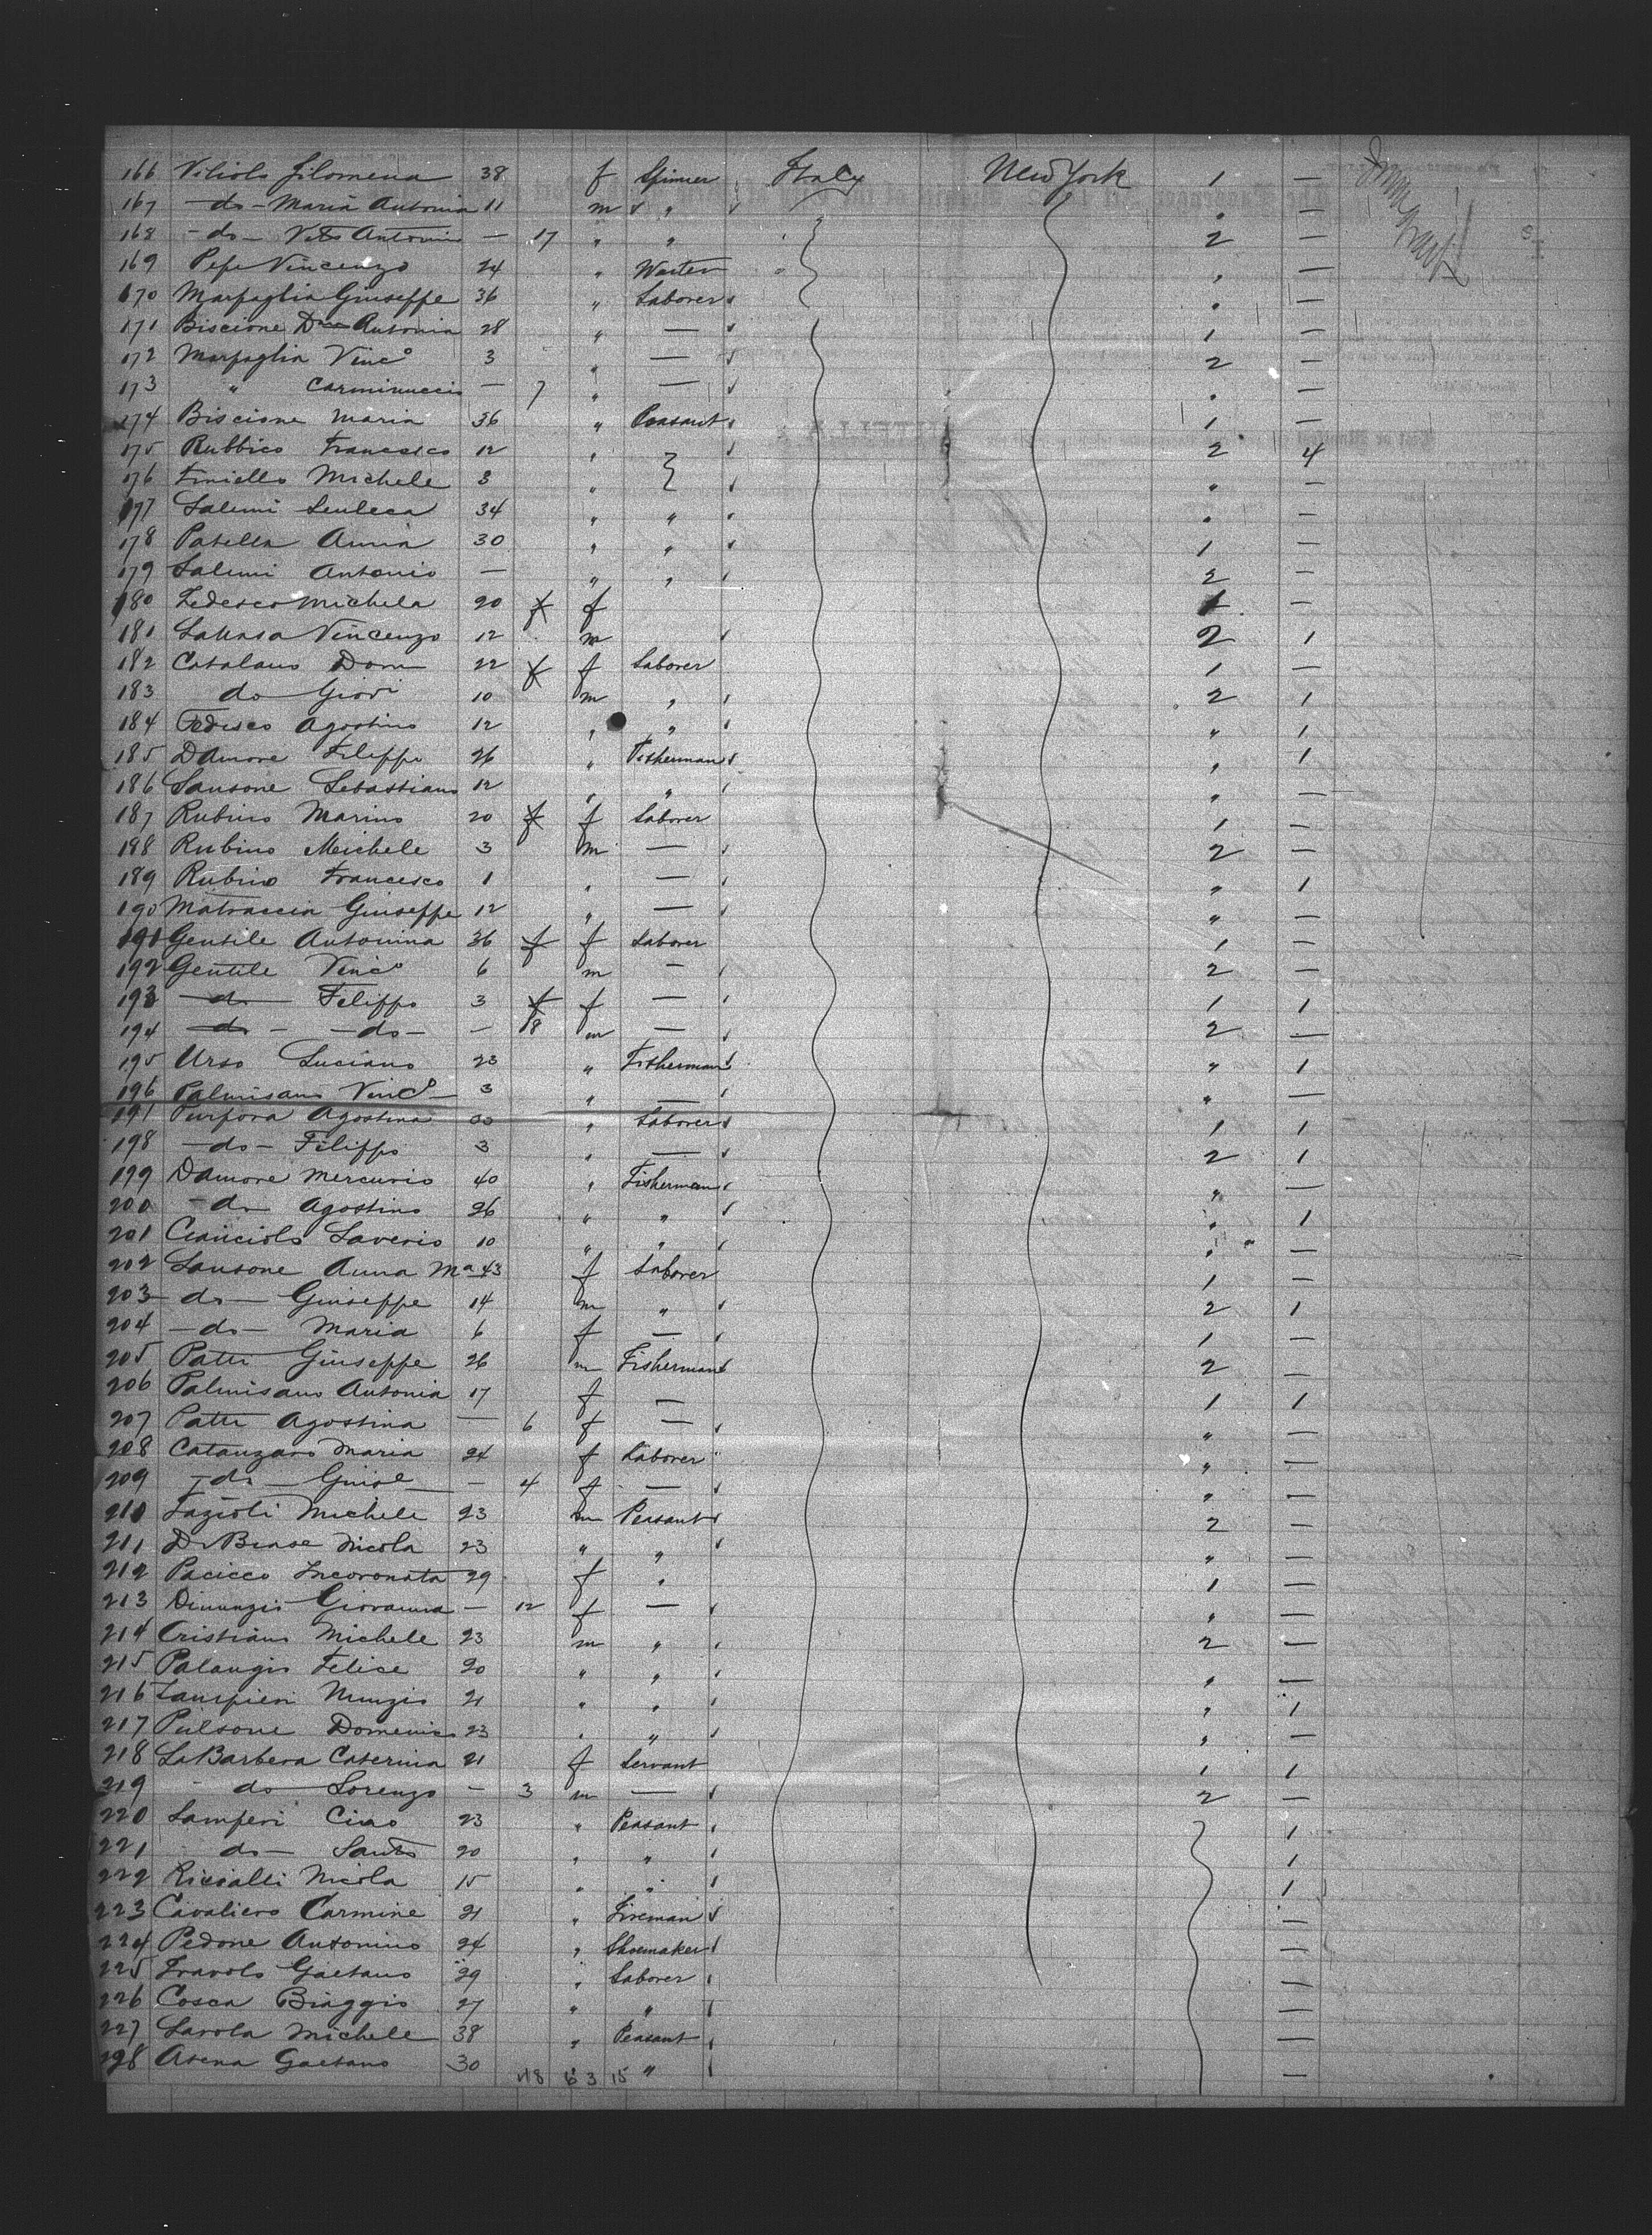 166 Viliolo Filomena 38 f Spinner Italy New York 1 —
167 — do — Maria Antonia 11 m " " —
168 — do — Vito Antonio — 17 " " 2 —
169 Pepe Vincenzo 24 " Waiter " —
170 Marfaglia Giuseppe 36 " Laborer " —
171 Biscione Antonia 28 " — 1 —
172 Marfaglia Vinc° 3 " — 2 —
173 " Carminuccio — 7 " — " —
174 Biscione Maria 36 " Peasant 1 —
175 Rubbico Francesco 12 " 2 4
176 Finiello Michele 3 " " —
177 Salemi Leuleca 34 " " " —
178 Patella Anna 30 " " 1 —
179 Salemi Antonio — " " 2 —
180 Tedesco Michela 20 f f 1 —
181 Vincenzo 12 m 2 1
182 Catalano Dom 22 f f Laborer 1 —
183 do Giovi 10 m " 2 1
184 Tedesco Agostino 12 " " " 1
185 Damore Filippo 26 " Fisherman " 1
186 Sansone Sebastiano 12 " " " —
187 Rubino Marino 20 f f Laborer 1 —
188 Rubino Meichele 3 m — 2 —
189 Rubino Francesco 1 " — " 1
190 Matraccia Giuseppe 12 " — " —
191 Gentile Antonina 36 f f Laborer 1 —
192 Gentile Vinc° 6 m — 2 —
193 do Filippo 3 f f — 1 1
194 do — — do — — 18 m — 2 —
195 Urso Luciano 23 " Fisherman " 1
196 Palmisano Vinc° 3 " — " —
197 Purpora Agostina 33 " Laborer 1 1
198 — do — Filippo 3 " — 2 1
199 Damore Mercurio 40 " Fisherman " —
200 — do Agostino 26 " " " 1
201 Cianciolo Saverio 10 " " " —
202 Sansone Anna Ma 43 f Laborer 1 —
203 — do — Giuseppe 14 m " 2 1
204 — do — Maria 6 f — 1 —
205 Patti Giuseppe 26 m Fisherman 2 —
206 Palmisano Antonia 17 f — 1 1
207 Patti Agostina — 6 f — " —
208 Catanzaro Maria 24 f Laborer " —
209 — do — Giuse — 4 f — " —
210 Fazioli Michele 23 m Peasant 2 —
211 Di Biase Nicola 23 " " " —
212 Pacicco Incoronata 29 f " 1 —
213 Dinunzio Giovanna — 12 f — " —
214 Cristiano Michele 23 m " 2 —
215 Palangio Felice 20 " " " —
216 Nunzio 21 " " " 1
217 Pulsone Domenico 23 " " " —
218 La Barbera Caterina 21 f Servant 1 1
219 do Lorenzo — 3 m — 2 —
220 Samperi Ciro 23 " Peasant 1
221 do — Santo 20 " " 1
222 Nicola 15 " " 1
223 Cavaliero Carmine 21 " Fireman —
224 Pedone Antonino 24 " Shoemaker —
225 Gaetano 29 " Laborer —
226 Cosca Biaggio 27 " " —
227 Sarola Michele 38 " Peasant —
228 Atena Gaetano 30 " —
48 63 15